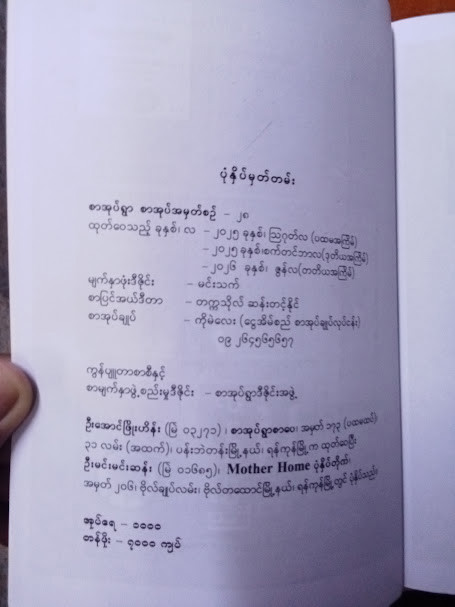 ပုံနှိပ်မှတ်တမ်း
စာအုပ်ရွာ စာအုပ်အမှတ်စဉ် – ၂၈
ထုတ်ဝေသည့် ခုနှစ်၊ လ – ၂၀၂၅ ခုနှစ်၊ ဩဂုတ်လ (ပထမအကြိမ်)
– ၂၀၂၅ ခုနှစ်၊ စက်တင်ဘာလ (ဒုတိယအကြိမ်)
– ၂၀၂၆ ခုနှစ်၊ ဇွန်လ (တတိယအကြိမ်)
မျက်နှာဖုံးဒီဇိုင်း – မင်းသက်
စာပြင်အယ်ဒီတာ – တက္ကသိုလ် ဆန်းတင့်နိုင်
စာအုပ်ချုပ် – ကိုမဲလေး (ငွေအိမ်စည် စာအုပ်ချုပ်လုပ်ငန်း)
၀၉ ၂၆၄၅၆၅၆၅၇
ကွန်ပျူတာစာစီနှင့်
စာမျက်နှာဖွဲ့စည်းမှုဒီဇိုင်း – စာအုပ်ရွာဒီဇိုင်းအဖွဲ့
ဦးအောင်ဖြိုးဟိန်း (မြဲ ၀၃၂၇၁) ၊ စာအုပ်ရွာစာပေ၊ အမှတ် ၁၇၃ (ပထမထပ်)
၃၁ လမ်း (အထက်)၊ ပန်းဘဲတန်းမြို့နယ်၊ ရန်ကုန်မြို့က ထုတ်ဝေပြီး
ဦးမင်းမင်းဆန်း (မြဲ ၀၁၆၈၅)၊ Mother Home ပုံနှိပ်တိုက်၊
အမှတ် ၂၀၆၊ ဗိုလ်ချုပ်လမ်း၊ ဗိုလ်တထောင်မြို့နယ်၊ ရန်ကုန်မြို့တွင် ပုံနှိပ်သည်။
အုပ်ရေ – ၁၀၀၀
တန်ဖိုး – ၇၀၀၀ ကျပ်